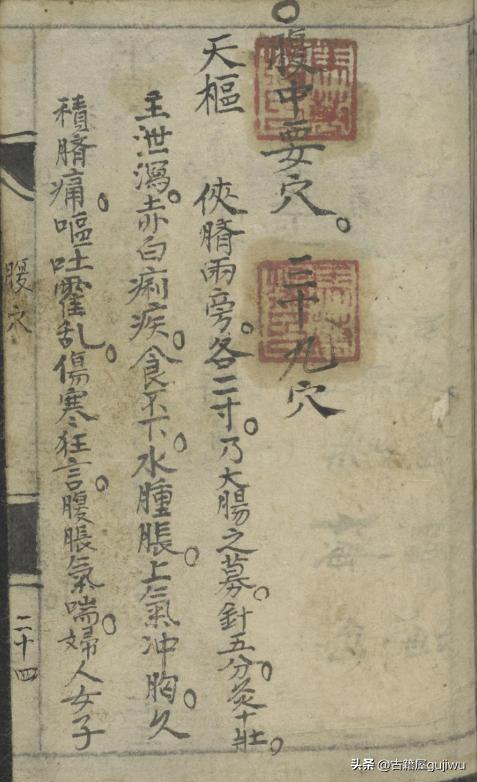 ○腹中要穴。三十九穴
天樞 俠臍兩旁。各二寸。乃大腸之募。針五分。灸十壯。
主泄瀉。赤白痢疾。食不下。水腫脹。上氣沖胸。久
積臍痛。嘔吐霍乱。傷寒狂言。腹脹氣喘。婦人女子
腹穴
二十四
头条 @古籍屋gujiwu